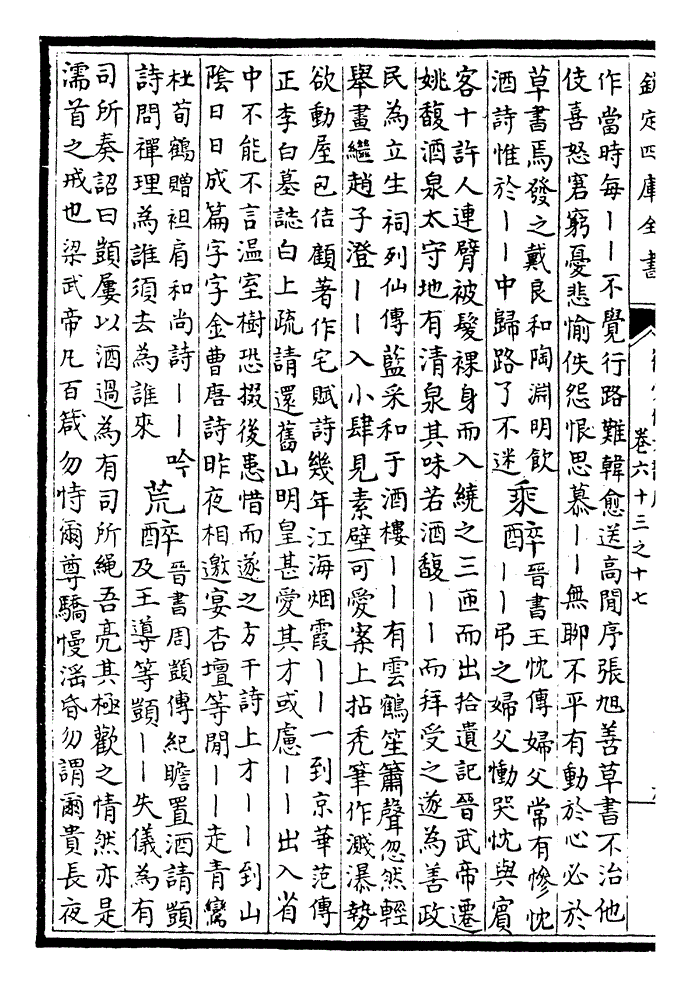 欽定四庫全書
卷六十三之十七
作當時每丨丨不覺行路難韓愈送高閒序張旭善草書不治他
伎喜怒窘窮憂悲愉佚怨恨思慕丨丨無聊不平有動於心必於
草書焉發之戴良和陶淵明飲
酒詩惟於丨丨中歸路了不迷
乘醉
晉書王忱傳婦父常有慘忱
丨丨弔之婦父慟哭忱與賓
客十許人連臂被髮裸身而入繞之三匝而出拾遺記晉武帝遷
姚馥酒泉太守地有清泉其味若酒馥丨丨而拜受之遂為善政
民為立生祠列仙傳藍采和于酒樓丨丨有雲鶴笙簫聲忽然輕
舉畫繼趙子澄丨丨入小肆見素壁可愛案上拈禿筆作濺瀑勢
欲動屋包佶顧著作宅賦詩幾年江海烟霞丨丨一到京華范傳
正李白墓誌白上疏請還舊山明皇甚愛其才或慮丨丨出入省
中不能不言温室樹恐掇後患惜而遂之方干詩上才丨丨到山
陰日日成篇字字金曹唐詩昨夜相邀宴杏壇等閒丨丨走青鸞
杜荀鶴贈袒肩和尚詩丨丨吟
詩問禪理為誰須去為誰來
荒醉
晉書周顗傳紀瞻置酒請顗
及王導等顗丨丨失儀為有
司所奏詔曰顗屢以酒過為有司所繩吾亮其極歡之情然亦是
濡首之戒也 梁武帝凡百箴勿恃爾尊驕慢滛昏勿謂爾貴長夜